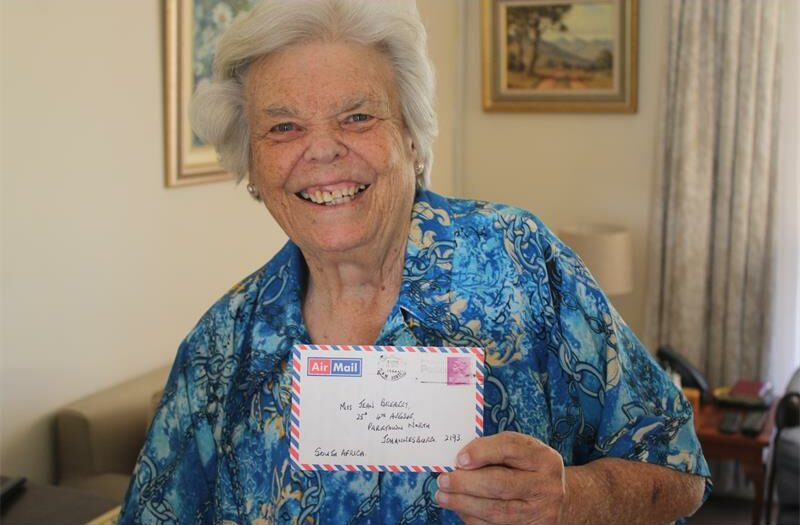 Air Mail
Mrs Jean Brearley,
25ᴬ 4th Avenue,
Parktown North
Johannesburg 2193.
South Africa.